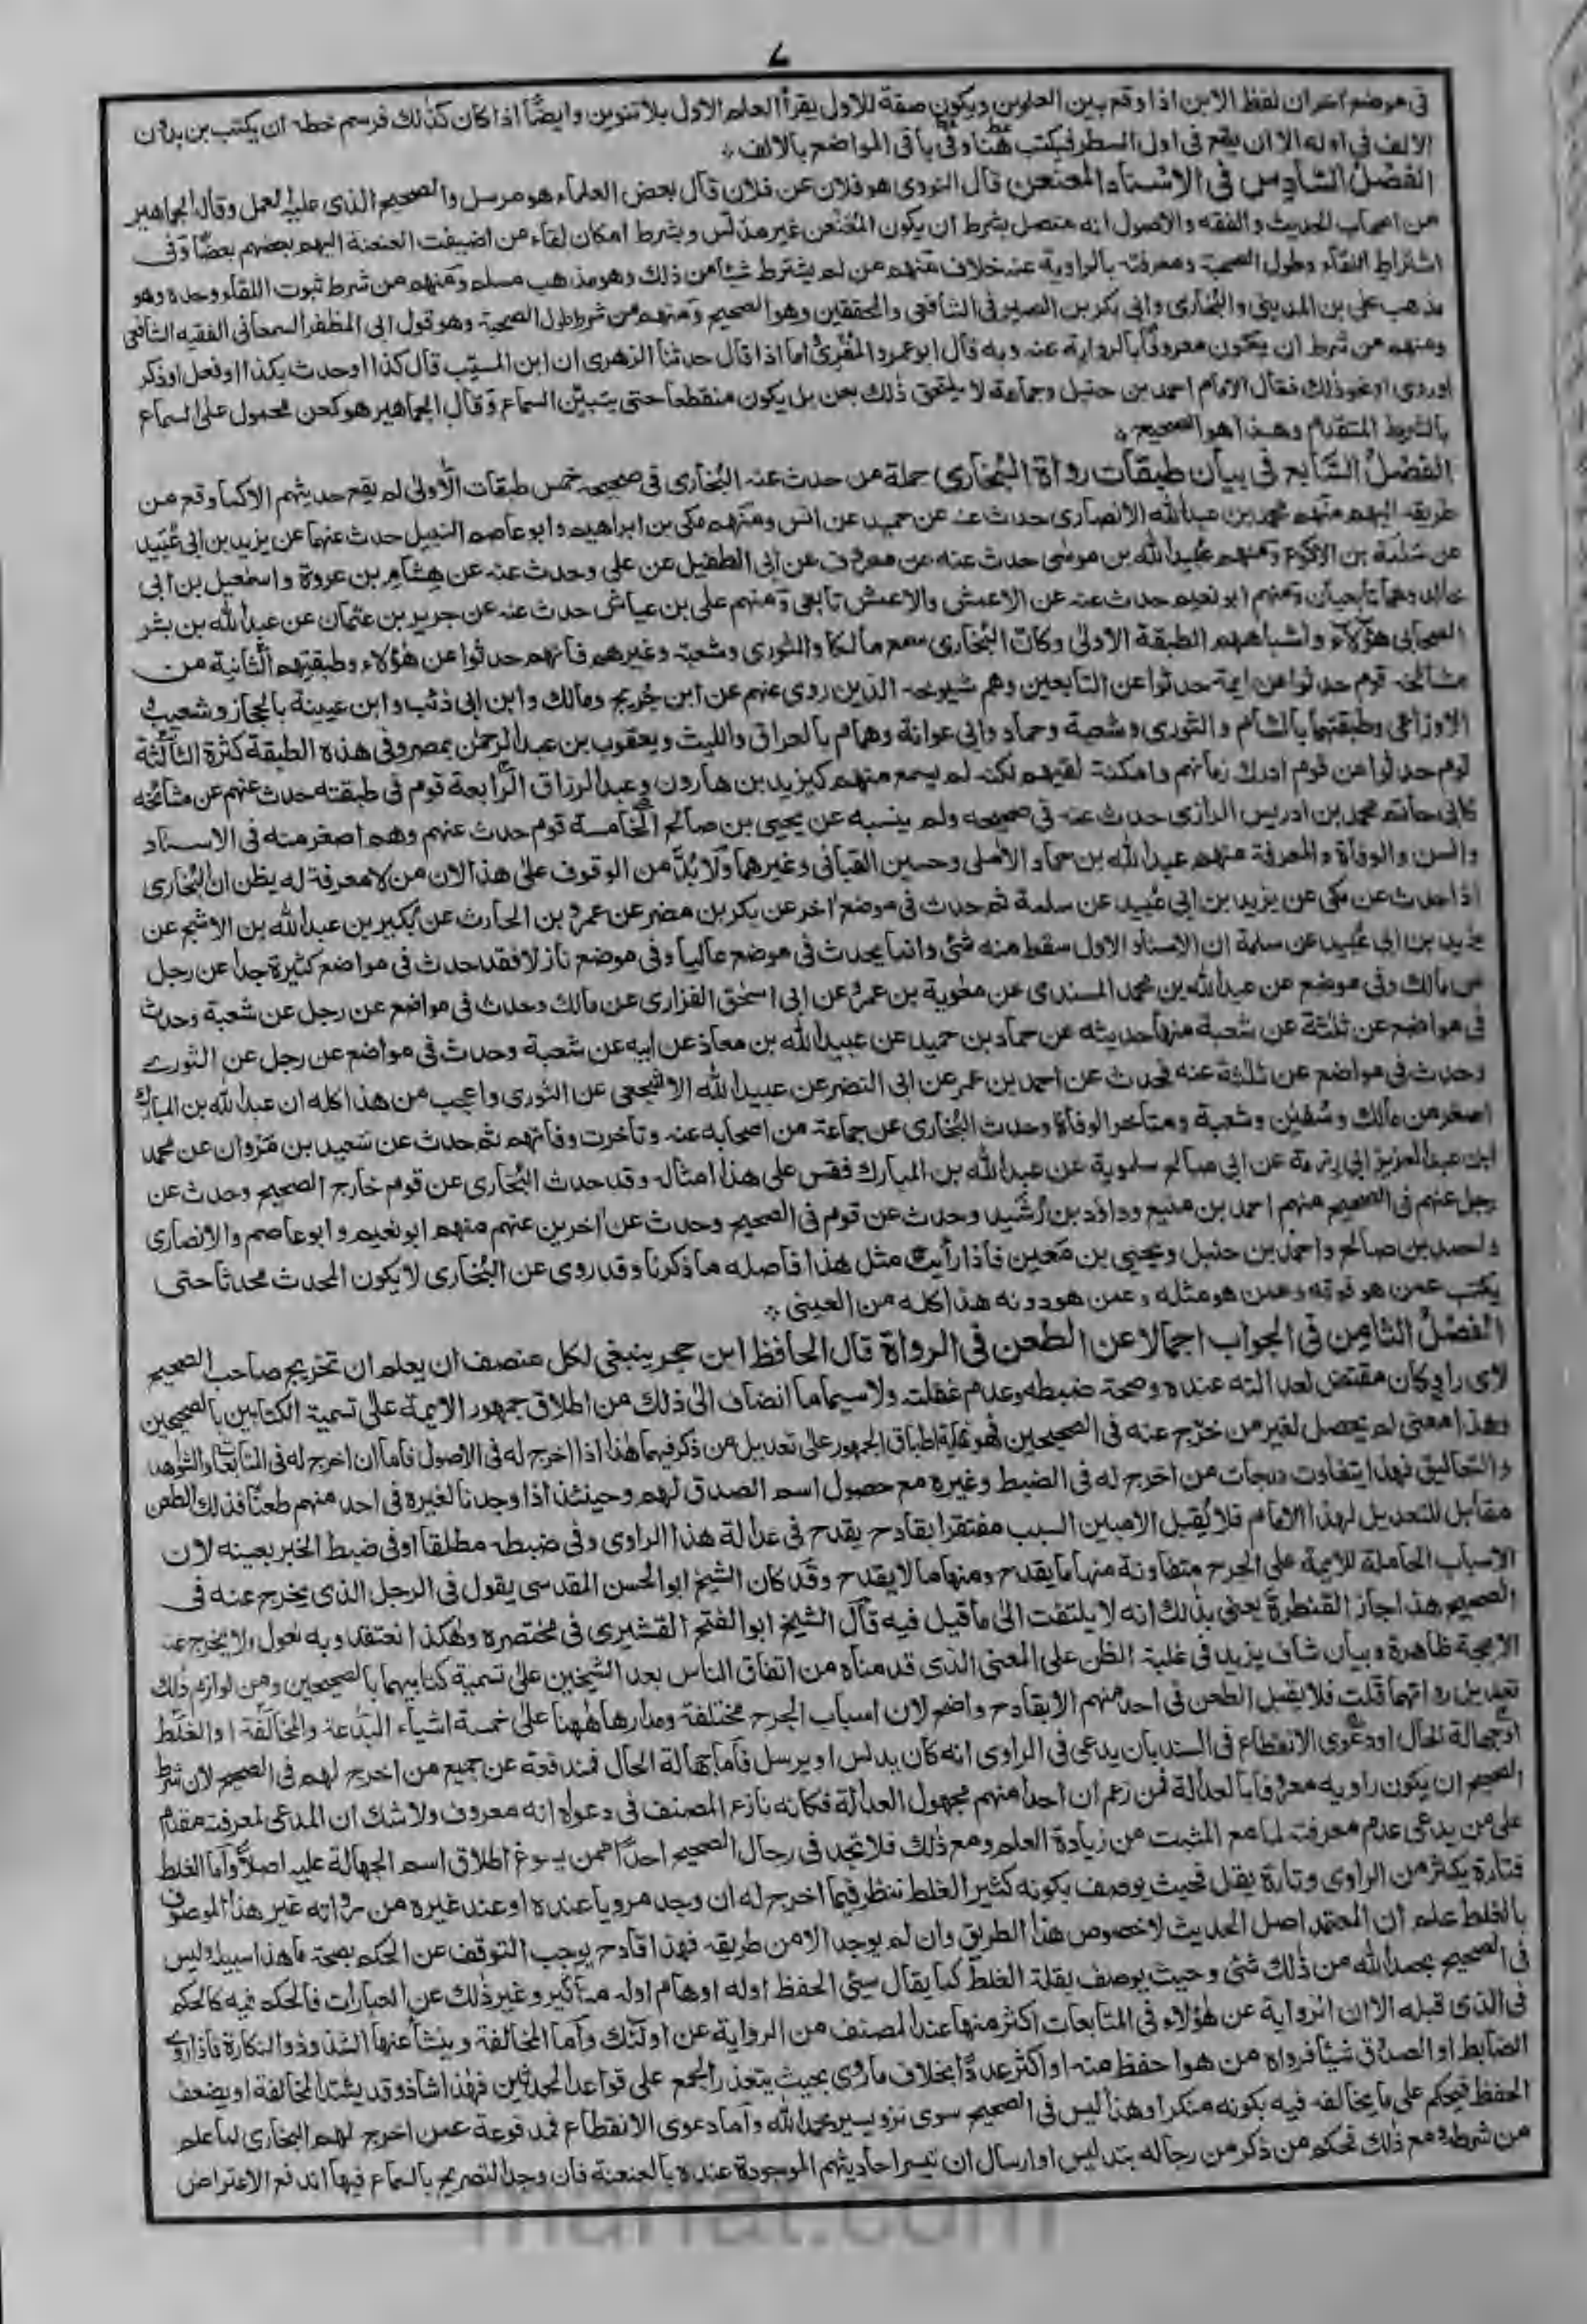 ٧
فى موضع اخر ان لفظ الابن اذا وقع بين العلمين ويكون صفة للاول يقرأ العلم الاول بلا تنوين وايضًا اذا كان كذلك فرسم خطه ان يكتب بن بدون
الالف فى اوله الا ان يقع فى اول السطر فيكتب هنا وفى باقى المواضع بالالف
الفصل السادس فى الاسناد المعنعن قال النووى هو فلان عن فلان قال بعض العلماء هو مرسل والصحيح الذى عليه العمل وقال الجماهير
من اصحاب الحديث والفقه والاصول انه متصل بشرط ان يكون المعنعن غير مدلس وبشرط امكان لقاء من اضيفت العنعنة اليهم بعضهم بعضًا وفى
اشتراط اللقاء وطول الصحبة ومعرفته بالرواية عنه خلاف منهم من لم يشترط شيئا من ذلك وهو مذهب مسلم ومنهم من شرط ثبوت اللقاء وحده وهو
مذهب على بن المدينى والبخارى وابى بكر بن الصيرفى الشافعى والمحققين وهو الصحيح ومنهم من شرط طول الصحبة وهو قول ابى المظفر السمعانى الفقيه الشافعى
ومنهم من شرط ان يكون معروفًا بالرواية عنه وبه قال ابو عمرو المقرئ اما اذا قال حدثنا الزهرى ان ابن المسيب قال كذا او حدث بكذا او فعل او ذكر
او روى او نحو ذلك فقال الامام احمد بن حنبل وجماعة لا يلتحق ذلك بعن بل يكون منقطعا حتى يتبين السماع وقال الجماهير هو كعن محمول على السماع
بالشرط المتقدم وهذا هو الصحيح
الفصل السابع فى بيان طبقات رواة البخارى جملة من حدث عنه البخارى فى صحيحه خمس طبقات الاولى لم يقع حديثهم الا كما وقع من
طريقه اليهم منهم محمد بن عبدالله الانصارى حدث عنه عن حميد عن انس ومنهم مكى بن ابراهيم وابو عاصم النبيل حدث عنهما عن يزيد بن ابى عُبَيد
عن سلمة بن الاكوع ومنهم عُبيدالله بن موسٰى حدث عنه عن معروف عن ابى الطفيل عن على وحدث عنه عن هشام بن عروة واسمٰعيل بن ابى
خالد وهما تابعيان ومنهم ابو نعيم حدث عنه عن الاعمش والاعمش تابعى ومنهم على بن عياش حدث عنه عن جرير بن عثمان عن عبدالله بن بشر
الصحابى هؤلاء واشباههم الطبقة الاولى وكان البخارى سمع مالكا والثورى وشعبة وغيرهم فانهم حدثوا عن هؤلاء وطبقتهم الثانية من
مشائخه قوم حدثوا عن ايمة حدثوا عن التابعين وهم شيوخه الذين روى عنهم عن ابن جريج ومالك وابن ابى ذئب وابن عيينة بالحجاز وشعيب و
الاوزاعى وطبقتهما بالشام والثورى وشعبة وحماد وابى عوانة وهمام بالعراق والليث ويعقوب بن عبدالرحمٰن بمصر وفى هذه الطبقة كثرة الثالثة
قوم حدثوا عن قوم ادرك زمانهم وامكنه لقيهم لكنه لم يسمع منهم كيزيد بن هارون وعبدالرزاق الرابعة قوم فى طبقته حدث عنهم عن مشائخه
كابى حاتم محمد بن ادريس الرازى حدث عنه فى صحيحه ولم ينسبه عن يحيى بن صالح الخامسة قوم حدث عنهم وهم اصغر منه فى الاسناد
والسن والوفاة والمعرفة منهم عبدالله بن حماد الأملى وحسين القبانى وغيرهما ولا بُدَّ من الوقوف على هذا لان من لا معرفة له يظن ان البخارى
اذا حدث عن مكى عن يزيد بن ابى عُبيد عن سلمة ثم حدث فى موضع اخر عن بكر بن مضر عن عمرو بن الحارث عن بُكير بن عبدالله بن الاشج عن
يزيد بن ابى عُبيد عن سلمة ان الاسناد الاول سقط منه شئ وانما يحدث فى موضع عاليا وفى موضع نازلا فقد حدث فى مواضع كثيرة جدا عن رجل
عن مالك وفى موضع عن عبدالله بن محمد المسندى عن معٰوية بن عمرو عن ابى اسحٰق الفزارى عن مالك وحدث فى مواضع عن رجل عن شعبة وحدث
فى مواضع عن ثلٰثة عن شعبة منها حديثه عن حماد بن حميد عن عبيدالله بن معاذ عن ابيه عن شعبة وحدث فى مواضع عن رجل عن الثورى
وحدث فى مواضع عن ثلٰثة عنه فحدث عن احمد بن عمر عن ابى النضر عن عبيدالله الاشجعى عن الثورى واعجب من هذا كله ان عبدالله بن المبارك
اصغر من مالك وسُفيٰن وشعبة ومتأخر الوفاة وحدث البخارى عن جماعة من اصحابه عنه وتأخرت وفاتهم ثم حدث عن سَعيد بن مَرْوان عن محمد
ابن عبدالعزيز ابى رزمة عن ابى صالح سلموية عن عبدالله بن المبارك فقس على هذا امثاله وقد حدث البخارى عن قوم خارج الصحيح وحدث عن
رجل عنهم فى الصحيح منهم احمد بن منيع وداؤد بن رُشَيد وحدث عن قوم فى الصحيح وحدث عن اخرين عنهم منهم ابو نعيم وابو عاصم والانصارى
واحمد بن صالح واحمد بن حنبل ويحيى بن مَعين فاذا رأيت مثل هذا فاصله ما ذكرنا وقد روى عن البخارى لا يكون المحدث محدثا حتى
يكتب عمن هو فوقه وعمن هو مثله وعمن هو دونه هذا كله من العينى
الفصل الثامن فى الجواب اجمالا عن الطعن فى الرواة قال الحافظ ابن حجر ينبغى لكل منصف ان يعلم ان تخريج صاحب الصحيح
لاى راو كان مقتض لعدالته عنده وصحة ضبطه وعدم غفلته ولا سيما ما انضاف الى ذلك من اطلاق جمهور الايمة على تسمية الكتابين بالصحيحين
وهذا معنى لم يحصل لغير من خرّج عنه فى الصحيحين فهو بمثابة اطباق الجمهور على تعديل من ذكر فيهما هٰذا اذا اخرج له فى الاصول فاما ان اخرج له فى المتابعات والشواهد
والتعاليق فهذا يتفاوت درجات من اخرج له فى الضبط وغيره مع حصول اسم الصدق لهم وحينئذ اذا وجدنا لغيره فى احد منهم طعنًا فذلك الطعن
مقابل للتعديل لهذا الامام فلا يُقبل الا مبين السبب مفتقرا بقادح يقدح فى عدالة هذا الراوى وفى ضبطه مطلقا او فى ضبط الخبر بعينه لان
الاسباب الحاملة للايمة على الجرح متفاوتة منها ما يقدح ومنها ما لا يقدح وقد كان الشيخ ابو الحسن المقدسى يقول فى الرجل الذى يخرج عنه فى
الصحيح هذا جاز القنطرة يعنى بذلك انه لا يلتفت الى ما قيل فيه قال الشيخ ابو الفتح القشيرى فى مختصره وهٰكذا نعتقد وبه نقول ولا يخرج عنه
الا بحجة ظاهرة وبيان شاف يزيد فى غلبة الظن على المعنى الذى قدمناه من اتفاق الناس بعد الشيخين على تسمية كتابيهما بالصحيحين ومن لوازم ذلك
تعديل رواتهما قلت فلا يقبل الطعن فى احد منهم الا بقادح واضح لان اسباب الجرح مختلفة ومدارها هٰهنا على خمسة اشياء البدعة والمخالفة او الغلط
او جهالة الحال او دعوى الانقطاع فى السند بان يدعى فى الراوى انه كان يدلس او يرسل فاما جهالة الحال فمندفعة عن جميع من اخرج لهم فى الصحيح لان شرط
الصحيح ان يكون راويه معروفا بالعدالة فمن زعم ان احدا منهم مجهول العدالة فكانه نازع المصنف فى دعواه انه معروف ولا شك ان المدعى لمعرفته مقدم
على من يدعى عدم معرفته لما مع المثبت من زيادة العلم ومع ذلك فلا تجد فى رجال الصحيح احدًا ممن يسوغ اطلاق اسم الجهالة عليه اصلًا واما الغلط
فتارة يكثر من الراوى وتارة يقل فحيث يوصف بكونه كثير الغلط ننظر فيما اخرج له ان وجد مرويا عنده او عند غيره من رواته غير هذا الموصوف
بالغلط علم ان المعتمد اصل الحديث لا خصوص هذا الطريق وان لم يوجد الا من طريقه فهذا قادح يوجب التوقف عن الحكم بصحة ما هذا سبيله وليس
فى الصحيح بحمدالله من ذلك شئ وحيث يوصف بقلة الغلط كما يقال سيئ الحفظ اوله اوهام اوله مناكير وغير ذلك عن العبارات فالحكم فيه كالحكم
فى الذى قبله الا ان الرواية عن هؤلاء فى المتابعات اكثر منها عند المصنف من الرواية عن اولئك واما المخالفة وينشأ عنها الشذوذ والنكارة فاذا روى
الضابط او الصدوق شيئا فرواه من هو احفظ منه او اكثر عددًا بخلاف ما روى بحيث يتعذر الجمع على قواعد المحدثين فهٰذا شاذ وقد يشتد المخالفة او يضعف
الحفظ فيحكم على ما يخالف فيه بكونه منكرا وهذا ليس فى الصحيح سوى نزر يسير بحمدالله واما دعوى الانقطاع فمدفوعة عمن اخرج لهم البخارى لما علم
من شرطه ومع ذلك فحكم من ذكر من رجاله بتدليس او ارسال ان تسبر احاديثهم الموجودة عنده بالعنعنة فان وجد التصريح بالسماع فيها اندفع الاعتراض